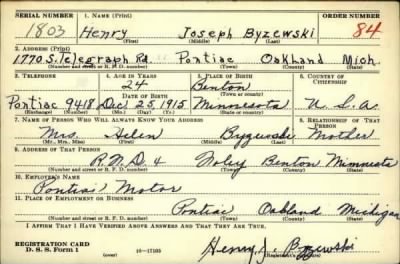 SERIAL NUMBER 1. NAME (Print) ORDER NUMBER
1803 Henry Joseph Byzewski 84
(First) (Middle) (Last)
2. ADDRESS (Print)
1770 S. Telegraph Rd. Pontiac Oakland Mich
(Number and street or R. F. D. number) (Town) (County) (State)
3. TELEPHONE 4. AGE IN YEARS 5. PLACE OF BIRTH 6. COUNTRY OF CITIZENSHIP
24 Benton
DATE OF BIRTH (Town or county)
Pontiac 9418 Dec 25, 1915 Minnesota U.S.a.
(Exchange) (Number) (Mo.) (Day) (Yr.) (State or country)
7. NAME OF PERSON WHO WILL ALWAYS KNOW YOUR ADDRESS 8. RELATIONSHIP OF THAT PERSON
Mrs. Helen Byzewski Mother
(Mr., Mrs., Miss) (First) (Middle) (Last)
9. ADDRESS OF THAT PERSON
Benton Minnesota
(Number and street or R. F. D. number) (Town) (County) (State)
10. EMPLOYER'S NAME
Pontiac Motor
11. PLACE OF EMPLOYMENT OR BUSINESS
Pontiac Oakland Michigan
(Number and street or R. F. D. number) (Town) (County) (State)
I AFFIRM THAT I HAVE VERIFIED ABOVE ANSWERS AND THAT THEY ARE TRUE.
REGISTRATION CARD
D. S. S. Form 1 16-17105 Henry J. Byzewski
(Registrant's signature)